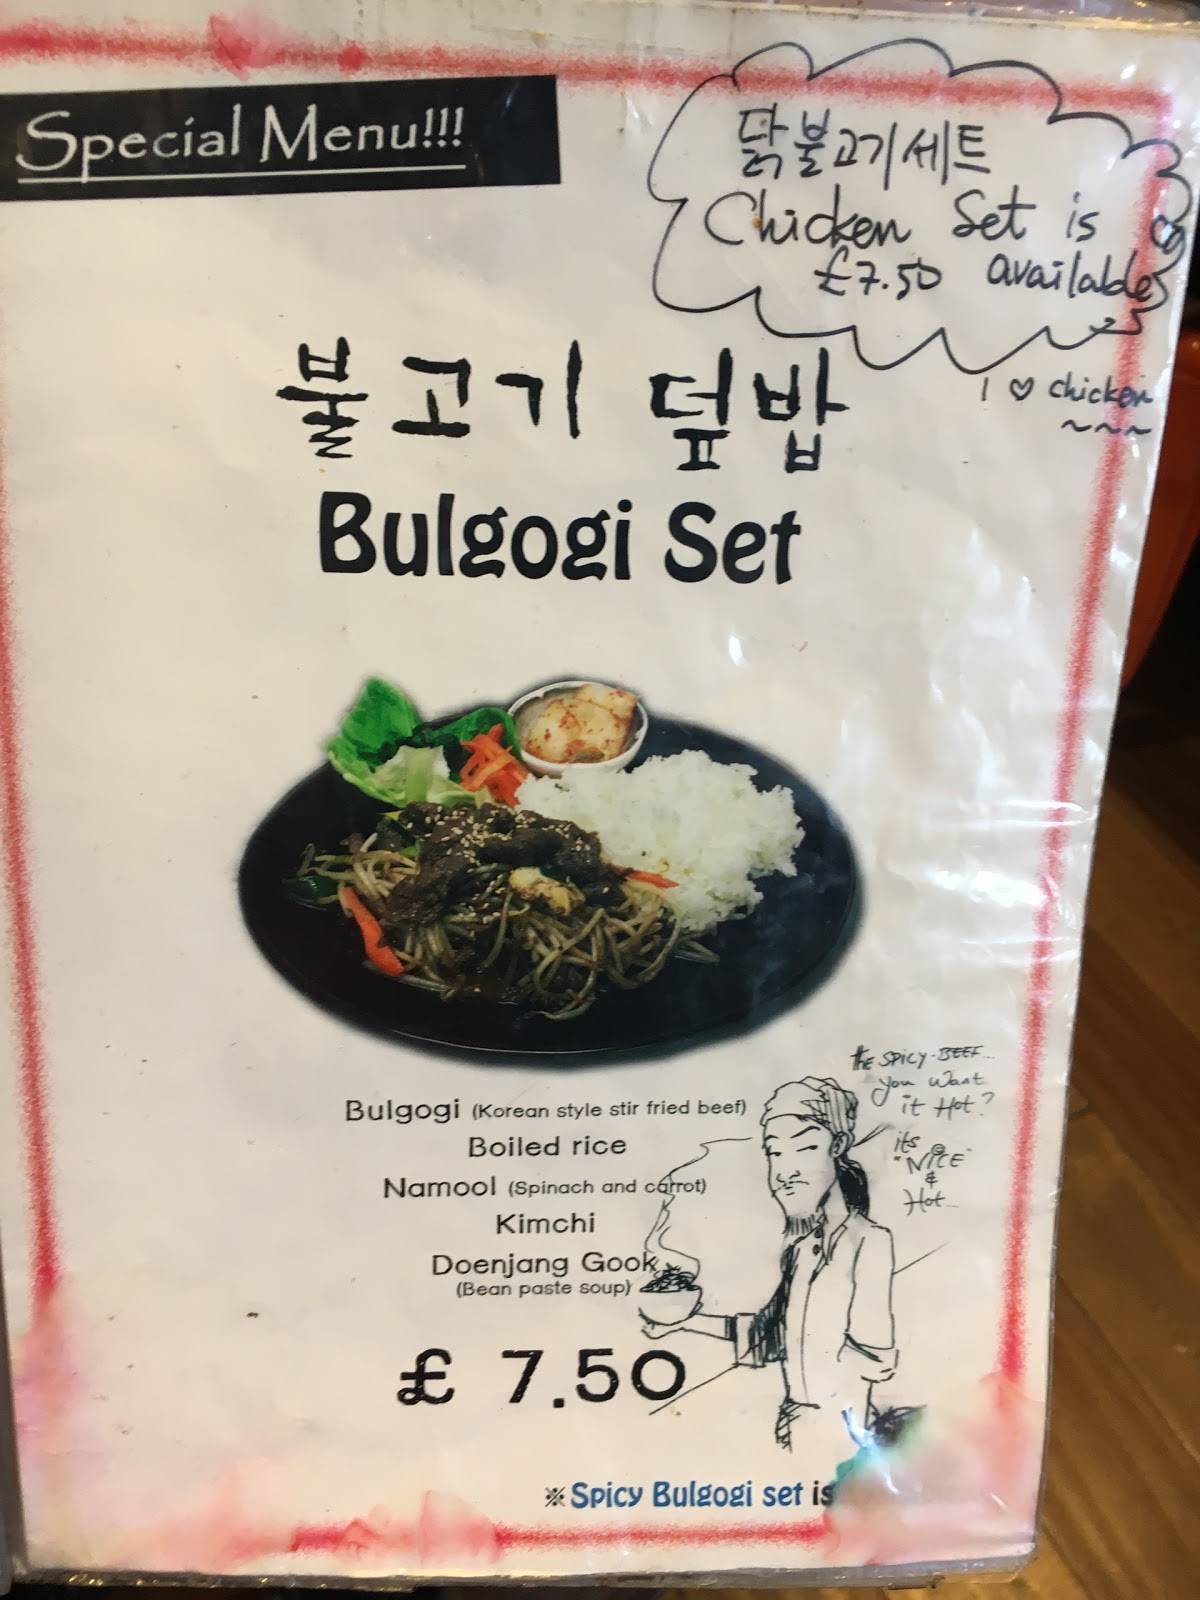 Special Menu!!!
닭불고기세트
Chicken Set is
£7.50 available
I ♡ chicken
~~~
불고기 덮밥
Bulgogi Set
the SPICY-BEEF...
you want
it Hot?
its
"NICE"
&
Hot...
Bulgogi (Korean style stir fried beef)
Boiled rice
Namool (Spinach and carrot)
Kimchi
Doenjang Gook
(Bean paste soup)
£ 7.50
※ Spicy Bulgogi set is